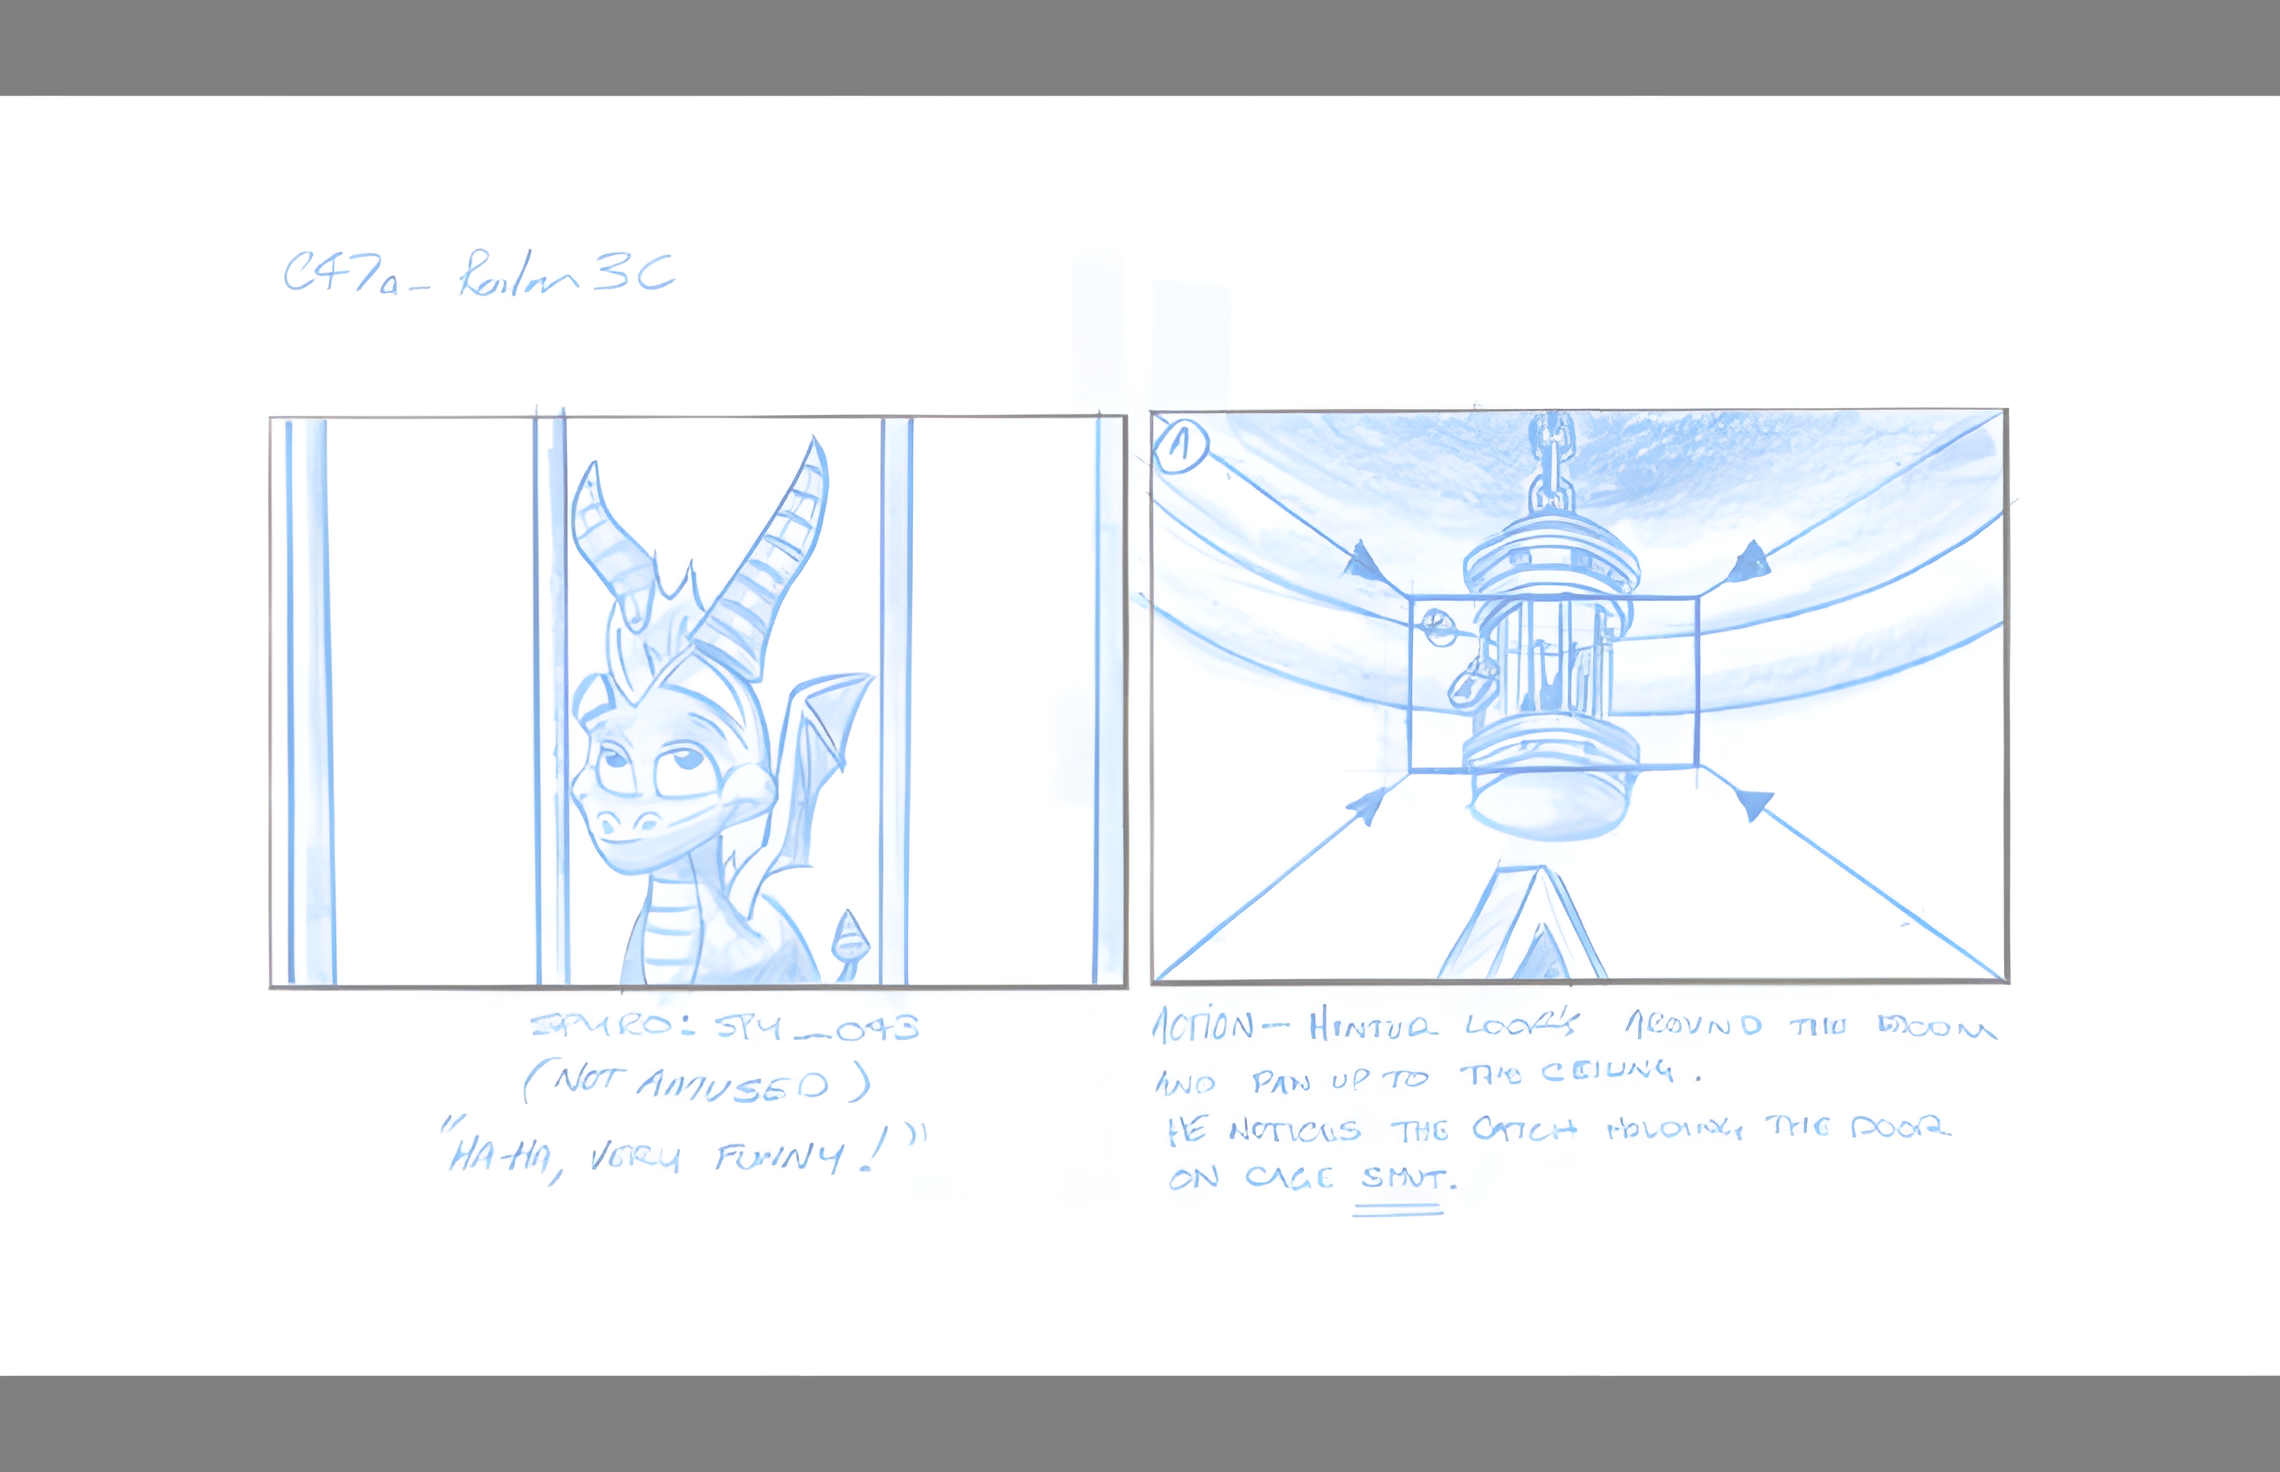 C47a_ Realm 3C
1
SPYRO: SPY_043
(NOT AMUSED)
"HA-HA, VERY FUNNY!"
ACTION — HUNTER LOOK'S AROUND THE ROOM
AND PAN UP TO THE CEILING.
HE NOTICES THE CATCH HOLDING THE DOOR
ON CAGE SHUT.